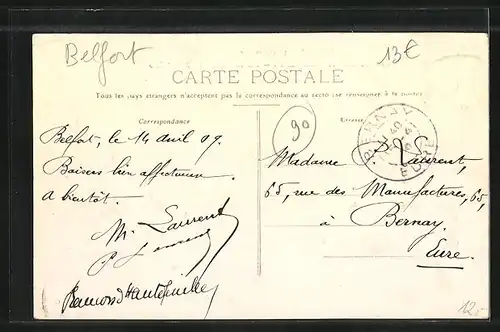 Belfort
13€
CARTE POSTALE
Tous les pays étrangers n'acceptent pas la correspondance au recto (se renseigner à la poste)
Correspondance
90
Belfort, le 14 avril 09.
Baisers bien affectueux
A bientôt.
M. Laurent
P Laurent
BERNAY
EURE
Madame P. Laurent,
65, rue des Manufactures, 65,
à
Bernay
Eure.
12.-